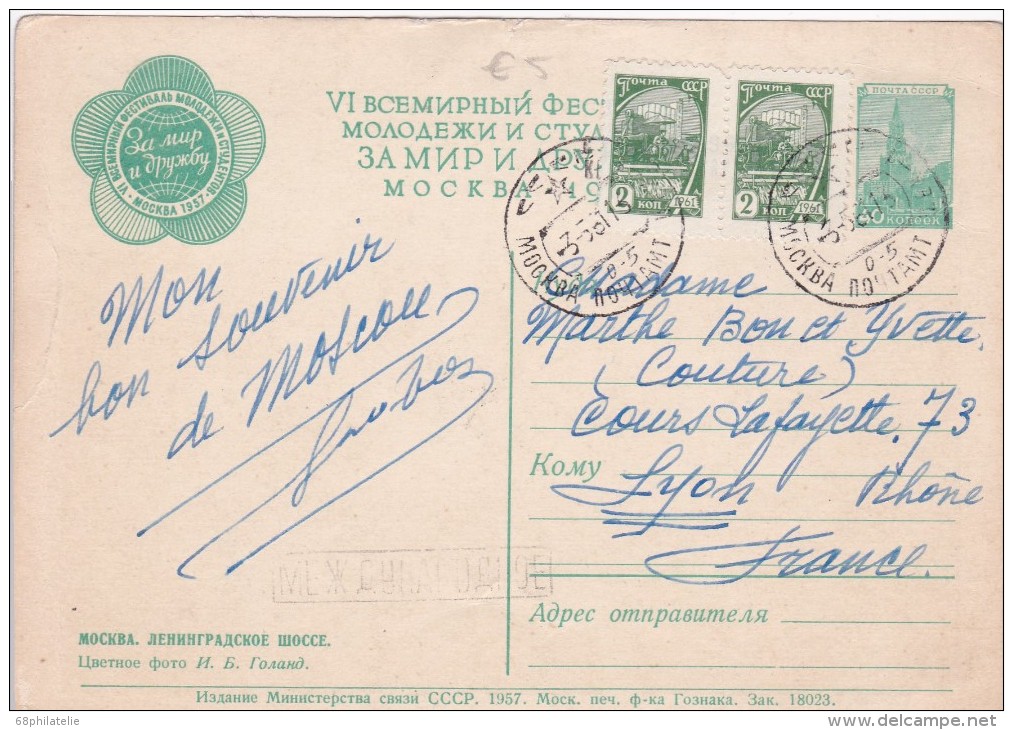 €5
VI ВСЕМИРНЫЙ ФЕС
МОЛОДЕЖИ И СТУД
ЗА МИР И ДРУ
МОСКВА 19
VI ВСЕМИРНЫЙ ФЕСТИВАЛЬ МОЛОДЕЖИ И СТУДЕНТОВ
За мир
и дружбу
МОСКВА 1957
ПОЧТА СССР
2 КОП 1961
ПОЧТА СССР
2 КОП 1961
ПОЧТА СССР
КОПЕЕК
МОСКВА ПОЧТАМТ
МОСКВА ПОЧТАМТ
Mon
bon souvenir
de Moscou
Madame
Marthe Bon et Yvette,
(Couture)
Cours Lafayette, 73
Кому
Lyon Rhône
France.
МЕЖДУНАРОДНОЕ
Адрес отправителя
МОСКВА. ЛЕНИНГРАДСКОЕ ШОССЕ.
Цветное фото И. Б. Голанд.
Издание Министерства связи СССР. 1957. Моск. печ. ф-ка Гознака. Зак. 18023.
68philatelie
delcampe.net